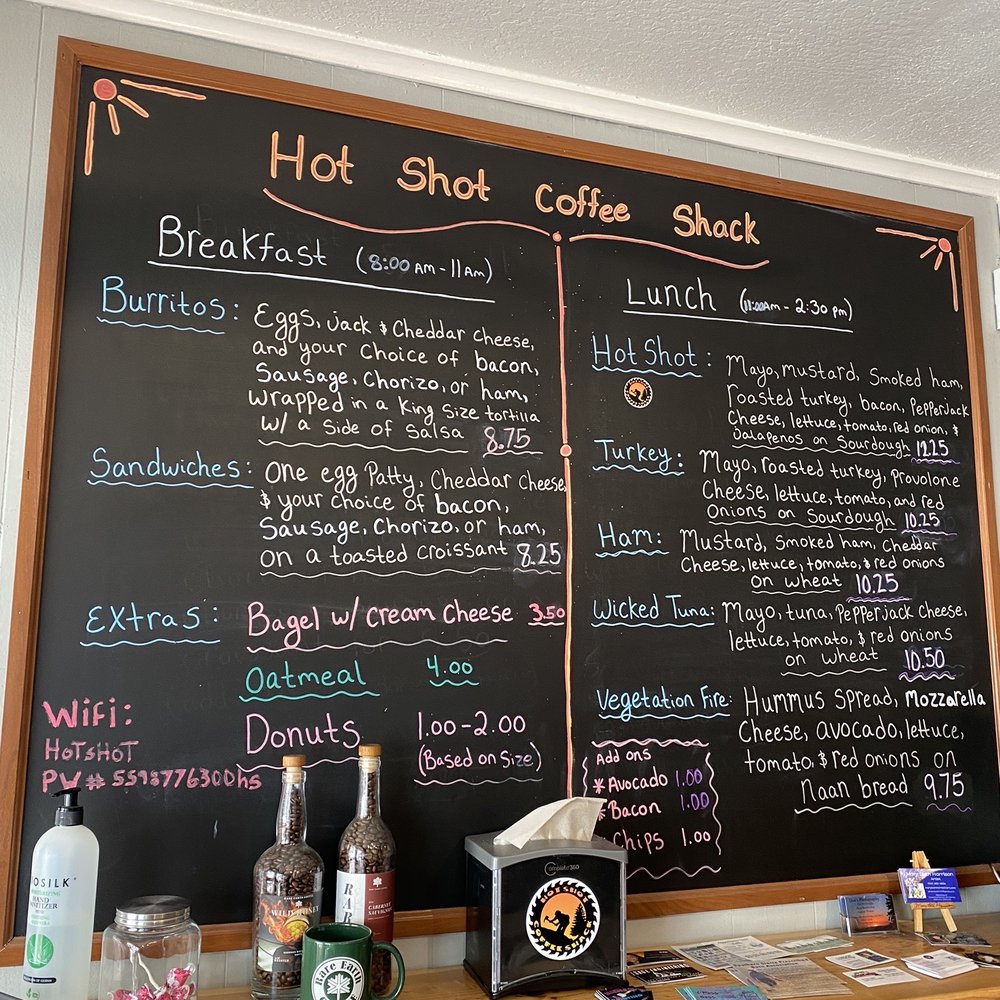 Hot Shot Coffee Shack
Breakfast (8:00 AM - 11 AM)
Burritos: Eggs, Jack & Cheddar Cheese,
and your Choice of bacon,
Sausage, Chorizo, or ham,
Wrapped in a King Size tortilla
w/ a side of Salsa 8.75
Sandwiches: One egg Patty, Cheddar Cheese
& your choice of bacon,
Sausage, Chorizo, or ham,
on a toasted Croissant 8.25
Extras: Bagel w/ Cream Cheese 3.50
Oatmeal 4.00
Donuts 1.00-2.00
(Based on Size)
Wifi:
HOTSHOT
PW # 5598776300hs
Lunch (11:00AM - 2:30 pm)
Hot Shot: Mayo, mustard, Smoked ham,
roasted turkey, bacon, PepperJack
Cheese, lettuce, tomato, red onion, &
Jalapenos on Sourdough 12.25
Turkey: Mayo, roasted turkey, Provolone
Cheese, lettuce, tomato, and red
Onions on Sourdough 10.25
Ham: Mustard, Smoked ham, Cheddar
Cheese, lettuce, tomato, & red onions
on wheat 10.25
Wicked Tuna: Mayo, tuna, PepperJack Cheese,
lettuce, tomato, & red onions
on wheat 10.50
Vegetation Fire: Hummus Spread, Mozzarella
Cheese, avocado, lettuce,
tomato, & red onions on
Naan bread 9.75
Add ons
* Avocado 1.00
* Bacon 1.00
Chips 1.00
OSILK
HAND
SANITIZER
WILD HONEY
RAR
CABERNET
SAUVIGNON
Rare Earth
Complete360
HOT SHOT
COFFEE SHACK